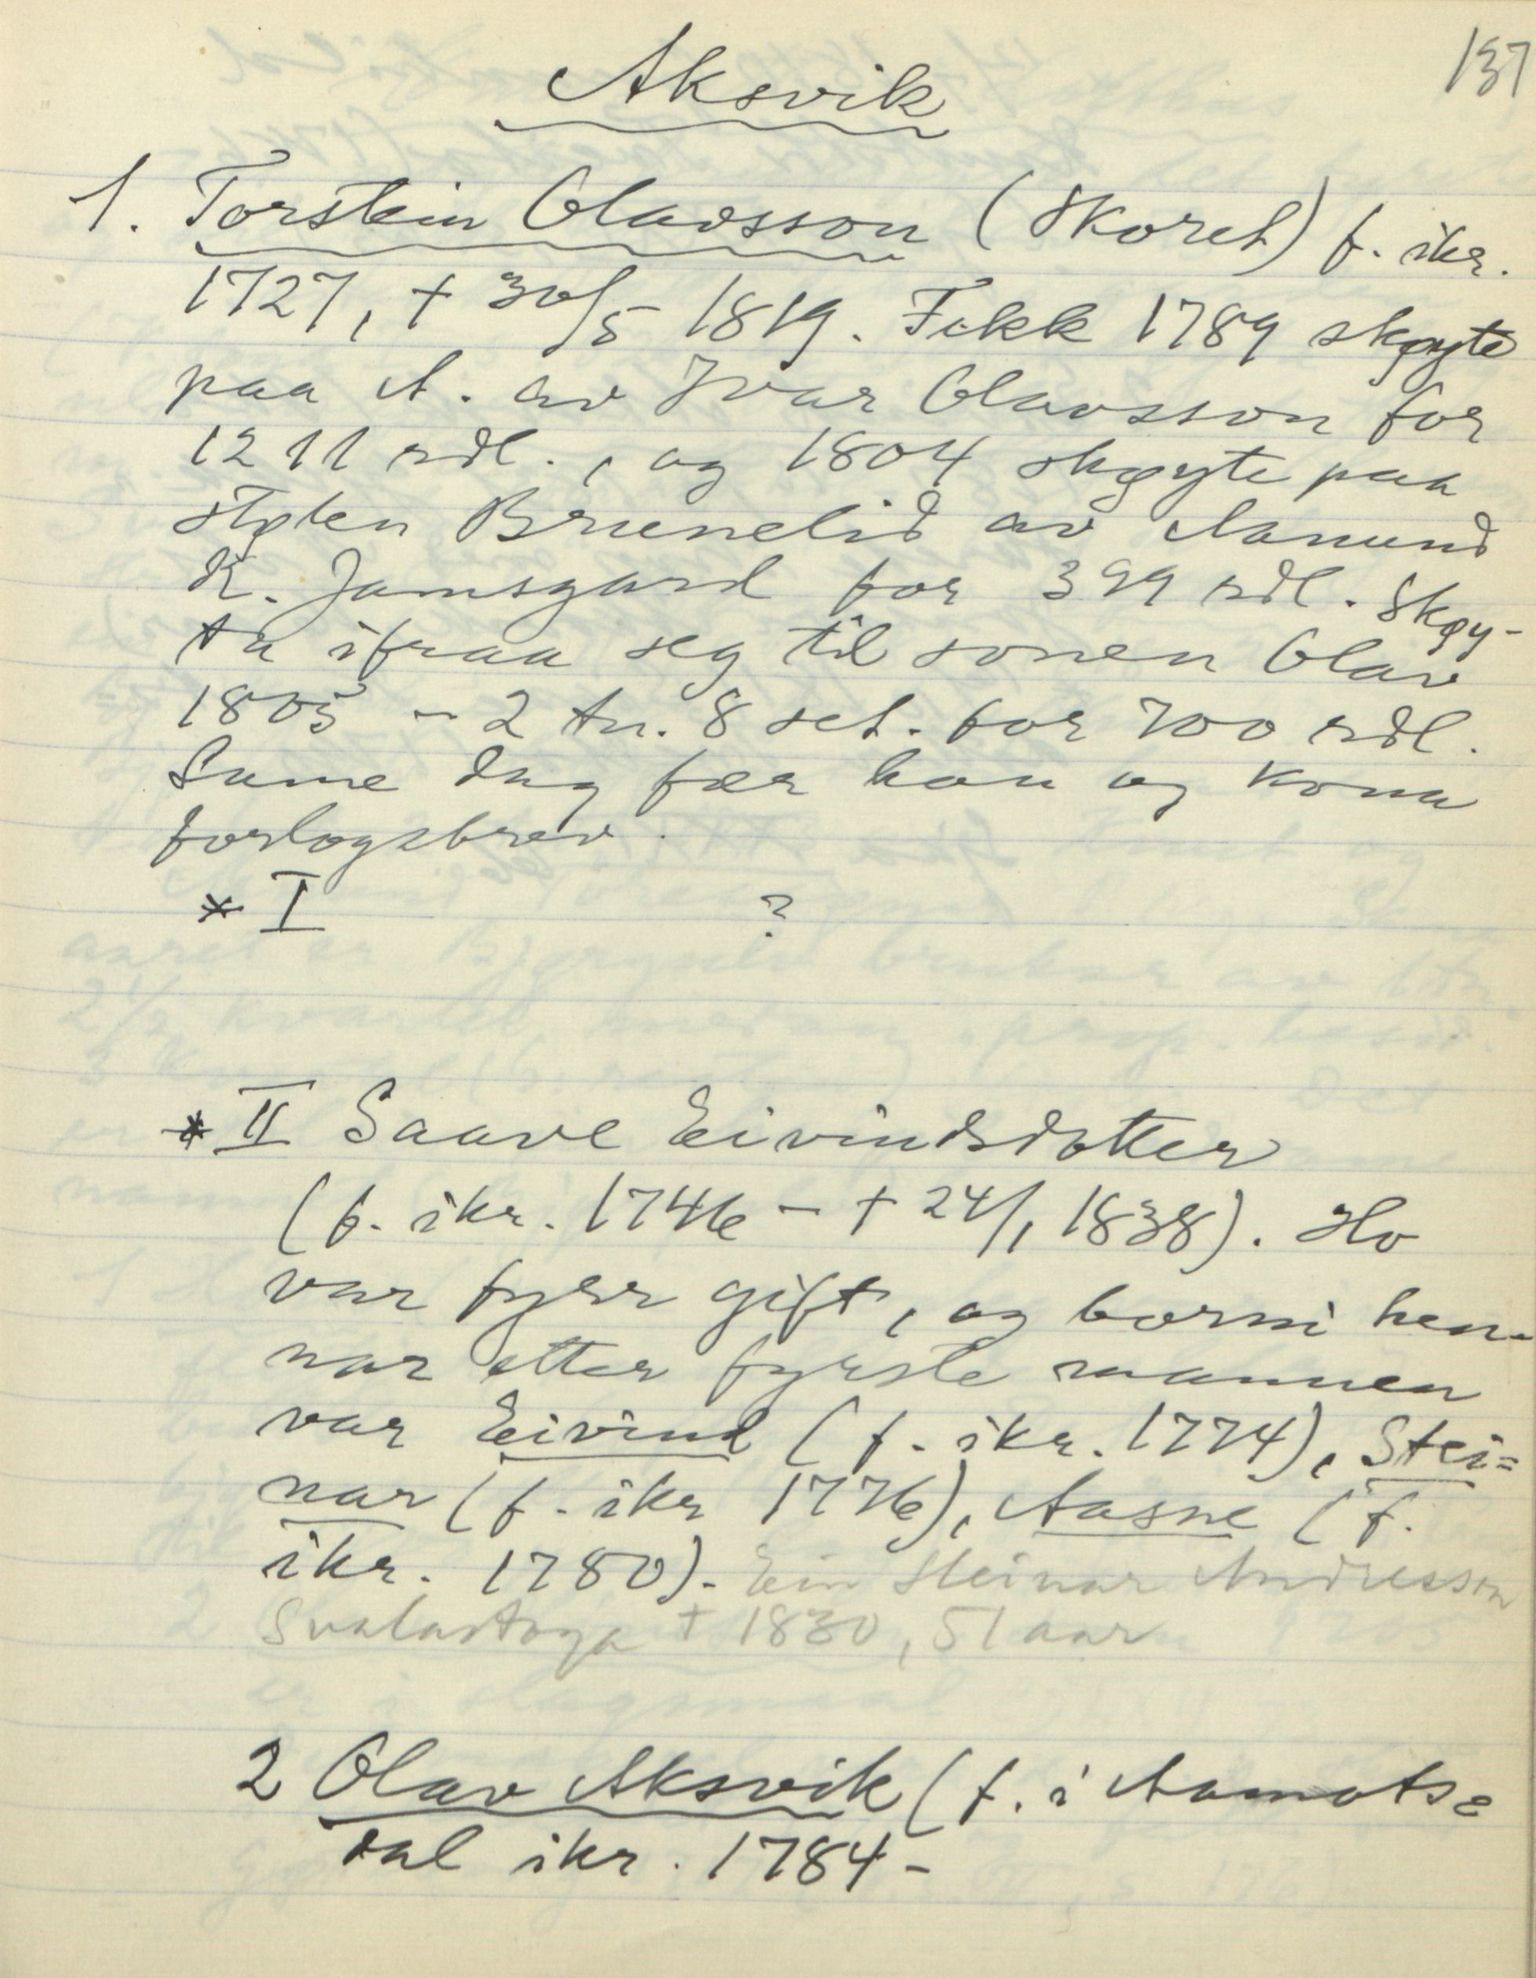 137
Aksvik
1. Torstein Olavsson (Skoret) f. ikr.
1727, + 30/5 1819. Fekk 1789 skøyte
paa A. av Ivar Olavsson for
1211 rdl., og 1804 skøyte paa
stølen Brunelid av Aanund
K. Jamsgard for 399 rdl. Skøy-
ta ifraa seg til sonen Olav
1805 - 2 tn. 8 set. for 700 rdl.
Same dag fær han og kona
forlogsbrev.
* I ?
* II Saave Eivindsdotter
(f. ikr. 1746 - + 24/1 1838). Ho
var fyrr gift, og borni hen-
nar etter fyrste mannen
var Eivind (f. ikr. 1774), Stei=
nar (f. ikr 1776), Aasne (f.
ikr. 1780). Ein Steinar Andresson
Svalastoga + 1830, 51 aar
2 Olav Aksvik (f. i Aamots=
dal ikr. 1784 -